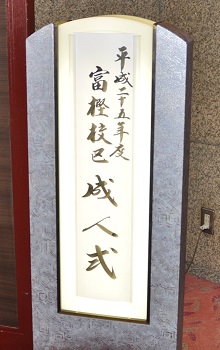 平成二十五年度
富樫校区 成人式